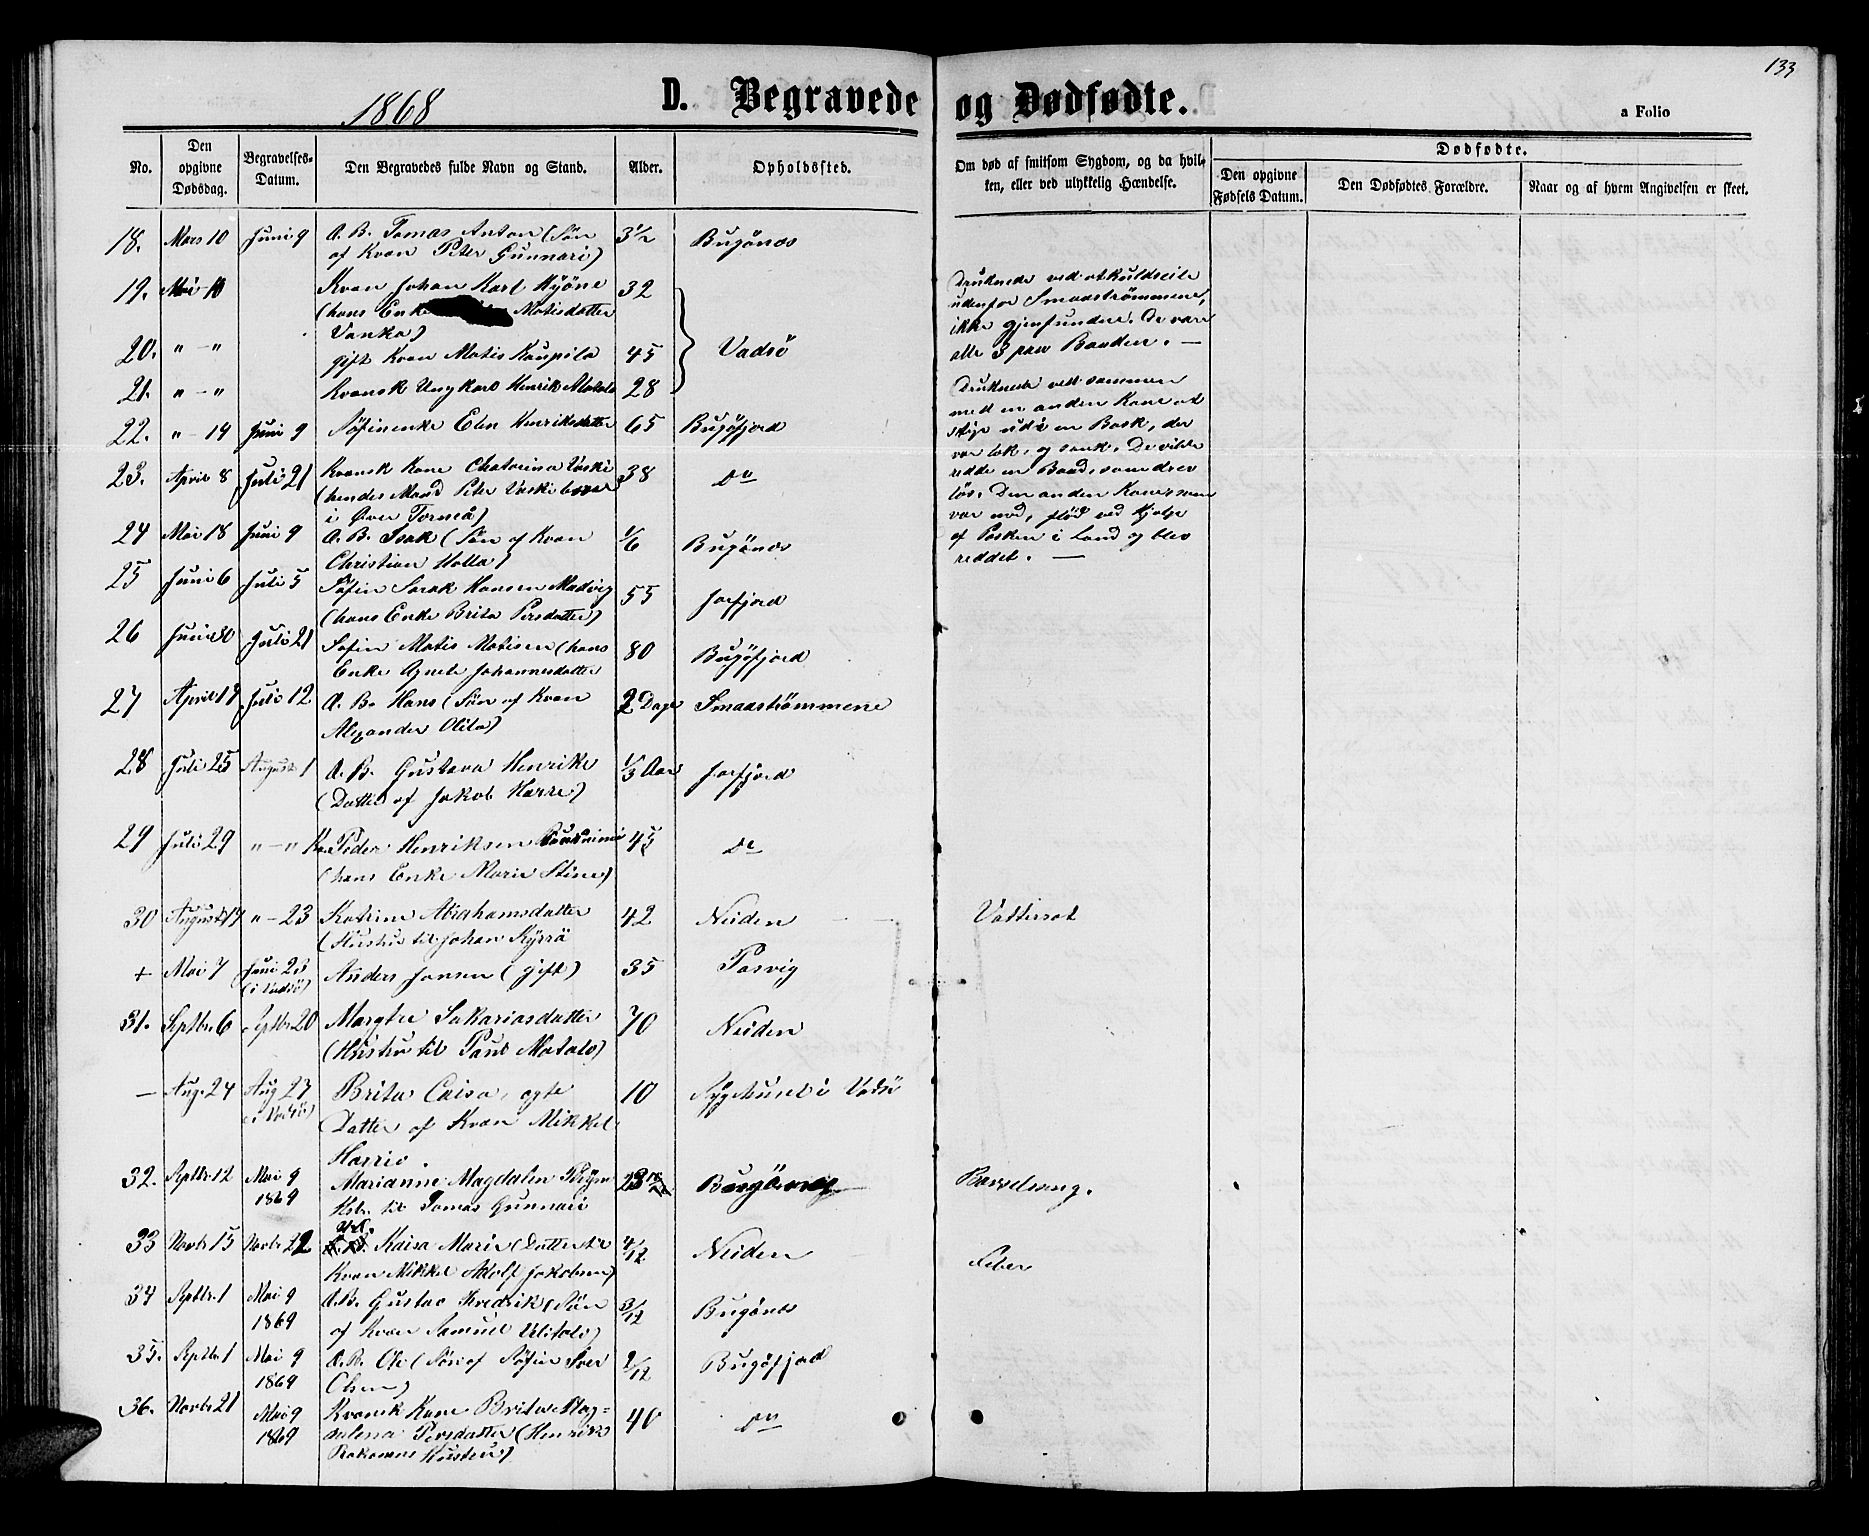 133
1868
D. Begravede og Dødfødte.
a Folio
No.
Den opgivne Dødsdag.
Begravelses-Datum.
Den Begravedes fulde Navn og Stand.
Alder.
Opholdssted.
Om død af smitsom Sygdom, og da hvil-
ken, eller ved ulykkelig Hændelse.
Dødfødte.
Den opgivne Fødsels Datum.
Den Dødfødtes Forældre.
Naar og af hvem Angivelsen er skeet.
18. Mars 10 Juni 9 A. B. Tomas Anton (Søn 3 1/2 Bugønæs
af Kvæn Peter Gunnari)
19. Mai 10 Kvæn Johan Karl Kyöne 32
(hans Enke Matisdatter
Vanka)
20. " - " gift Kvæn Matis Kaupila 45 Vadsö
21. " - " Kvænsk Ungkarl Henrik Matala 28
Druknede ved at kuldseile
udenfor Smaaströmmene,
ikke gjenfundne. De vare
alle 3 paa Baaden. —
22. " - 14 Juni 9 Söfinenke Elen Henriksdatter 65 Bugöfjord
23. April 8 Juli 21 Kvænsk Kone Chatarina Uski 38 Do
(hendes Mand Peter Uski boer
i Over Torneå)
Druknede ved sammen
med en anden Kone at
stige ud i en Bask, der
var læk, og sank. De vilde
redde en Baad, som drev
løs. Den anden Kone som
var med, flød ved Hjælp
af Pasken i Land og blev
reddet. —
24 Mai 18 Juni 9 A. B. Isak (Søn af Kvæn 1/6 Bugönæs
Christian Halla)
25 Juni 6 Juli 5 Söfin Sarak Hansen Madvig 55 Jarfjord
(hans Enke Brita Persdatter)
26 Juni 30 Juli 21 Söfin Matis Matisen (hans 80 Bugöfjord
Enke Agnete Johannesdatter
27 April 17 Juli 12 A. B. Hans (Søn af Kvæn 2 Dage Smaaströmmene
Alexander Olila)
28 Juli 25 August 1 A. B. Gustava Henrike 1/3 Aar Jarfjord
(Datter af Jakob Harre)
29 Juli 29 " - " Kv. Peder Henriksen 45 Do
(hans Enke Marie Stine)
30 August 17 " - 23 Katrine Abrahamsdatter 42 Neiden Vattersot
(Hustru til Johan Kyrrö
+ Mai 7 Juni 23 Anders Jonsen (gift) 35 Pasvig
(i Vadsö)
31. Septbr 6 Septbr 20 Margtre Sakariasdatter 70 Neiden
(Hustru til Paul Matala)
— Aug. 24 Aug 27 Brita Caisa, ægte 10 Sygehuset i Vadsö
(i Vadsö) Datter af Kvæn Mikkel
Harrio.
32. Septbr. 12 Mai 9 Marianne Magdalen 23 Bugönæs Barselseng.
1869 Hstr. til Tomas Gunnari
33 Novbr 15 Novbr 22 Kaisa Marie (Datter til 4/12 Neiden Feber
Kvæn Mikkel Adolf Jakobsen)
34 Septbr. 1 Mai 9 A. B. Gustav Fredrik (Søn 3/12 Bugönæs
1869 af Kvæn Samuel Ulitalo)
35. Septbr 1 Mai 9 A. B. Ole (Søn af Söfin Iver 2/12 Bugöfjord
1869 Olsen)
36. Novbr 21 Mai 9 Kvænsk Kone Brita Mag- 40 Do
1869 dalena Persdatter (Henrik
Hustru)